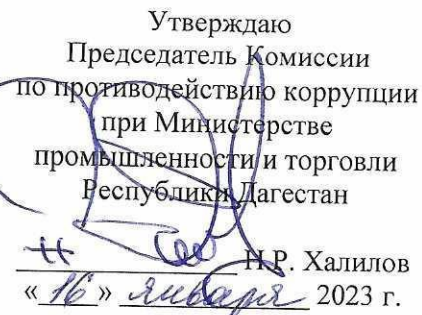 Утверждаю
Председатель Комиссии
по противодействию коррупции
при Министерстве
промышленности и торговли
Республики Дагестан
Н.Р. Халилов
«16» января 2023 г.